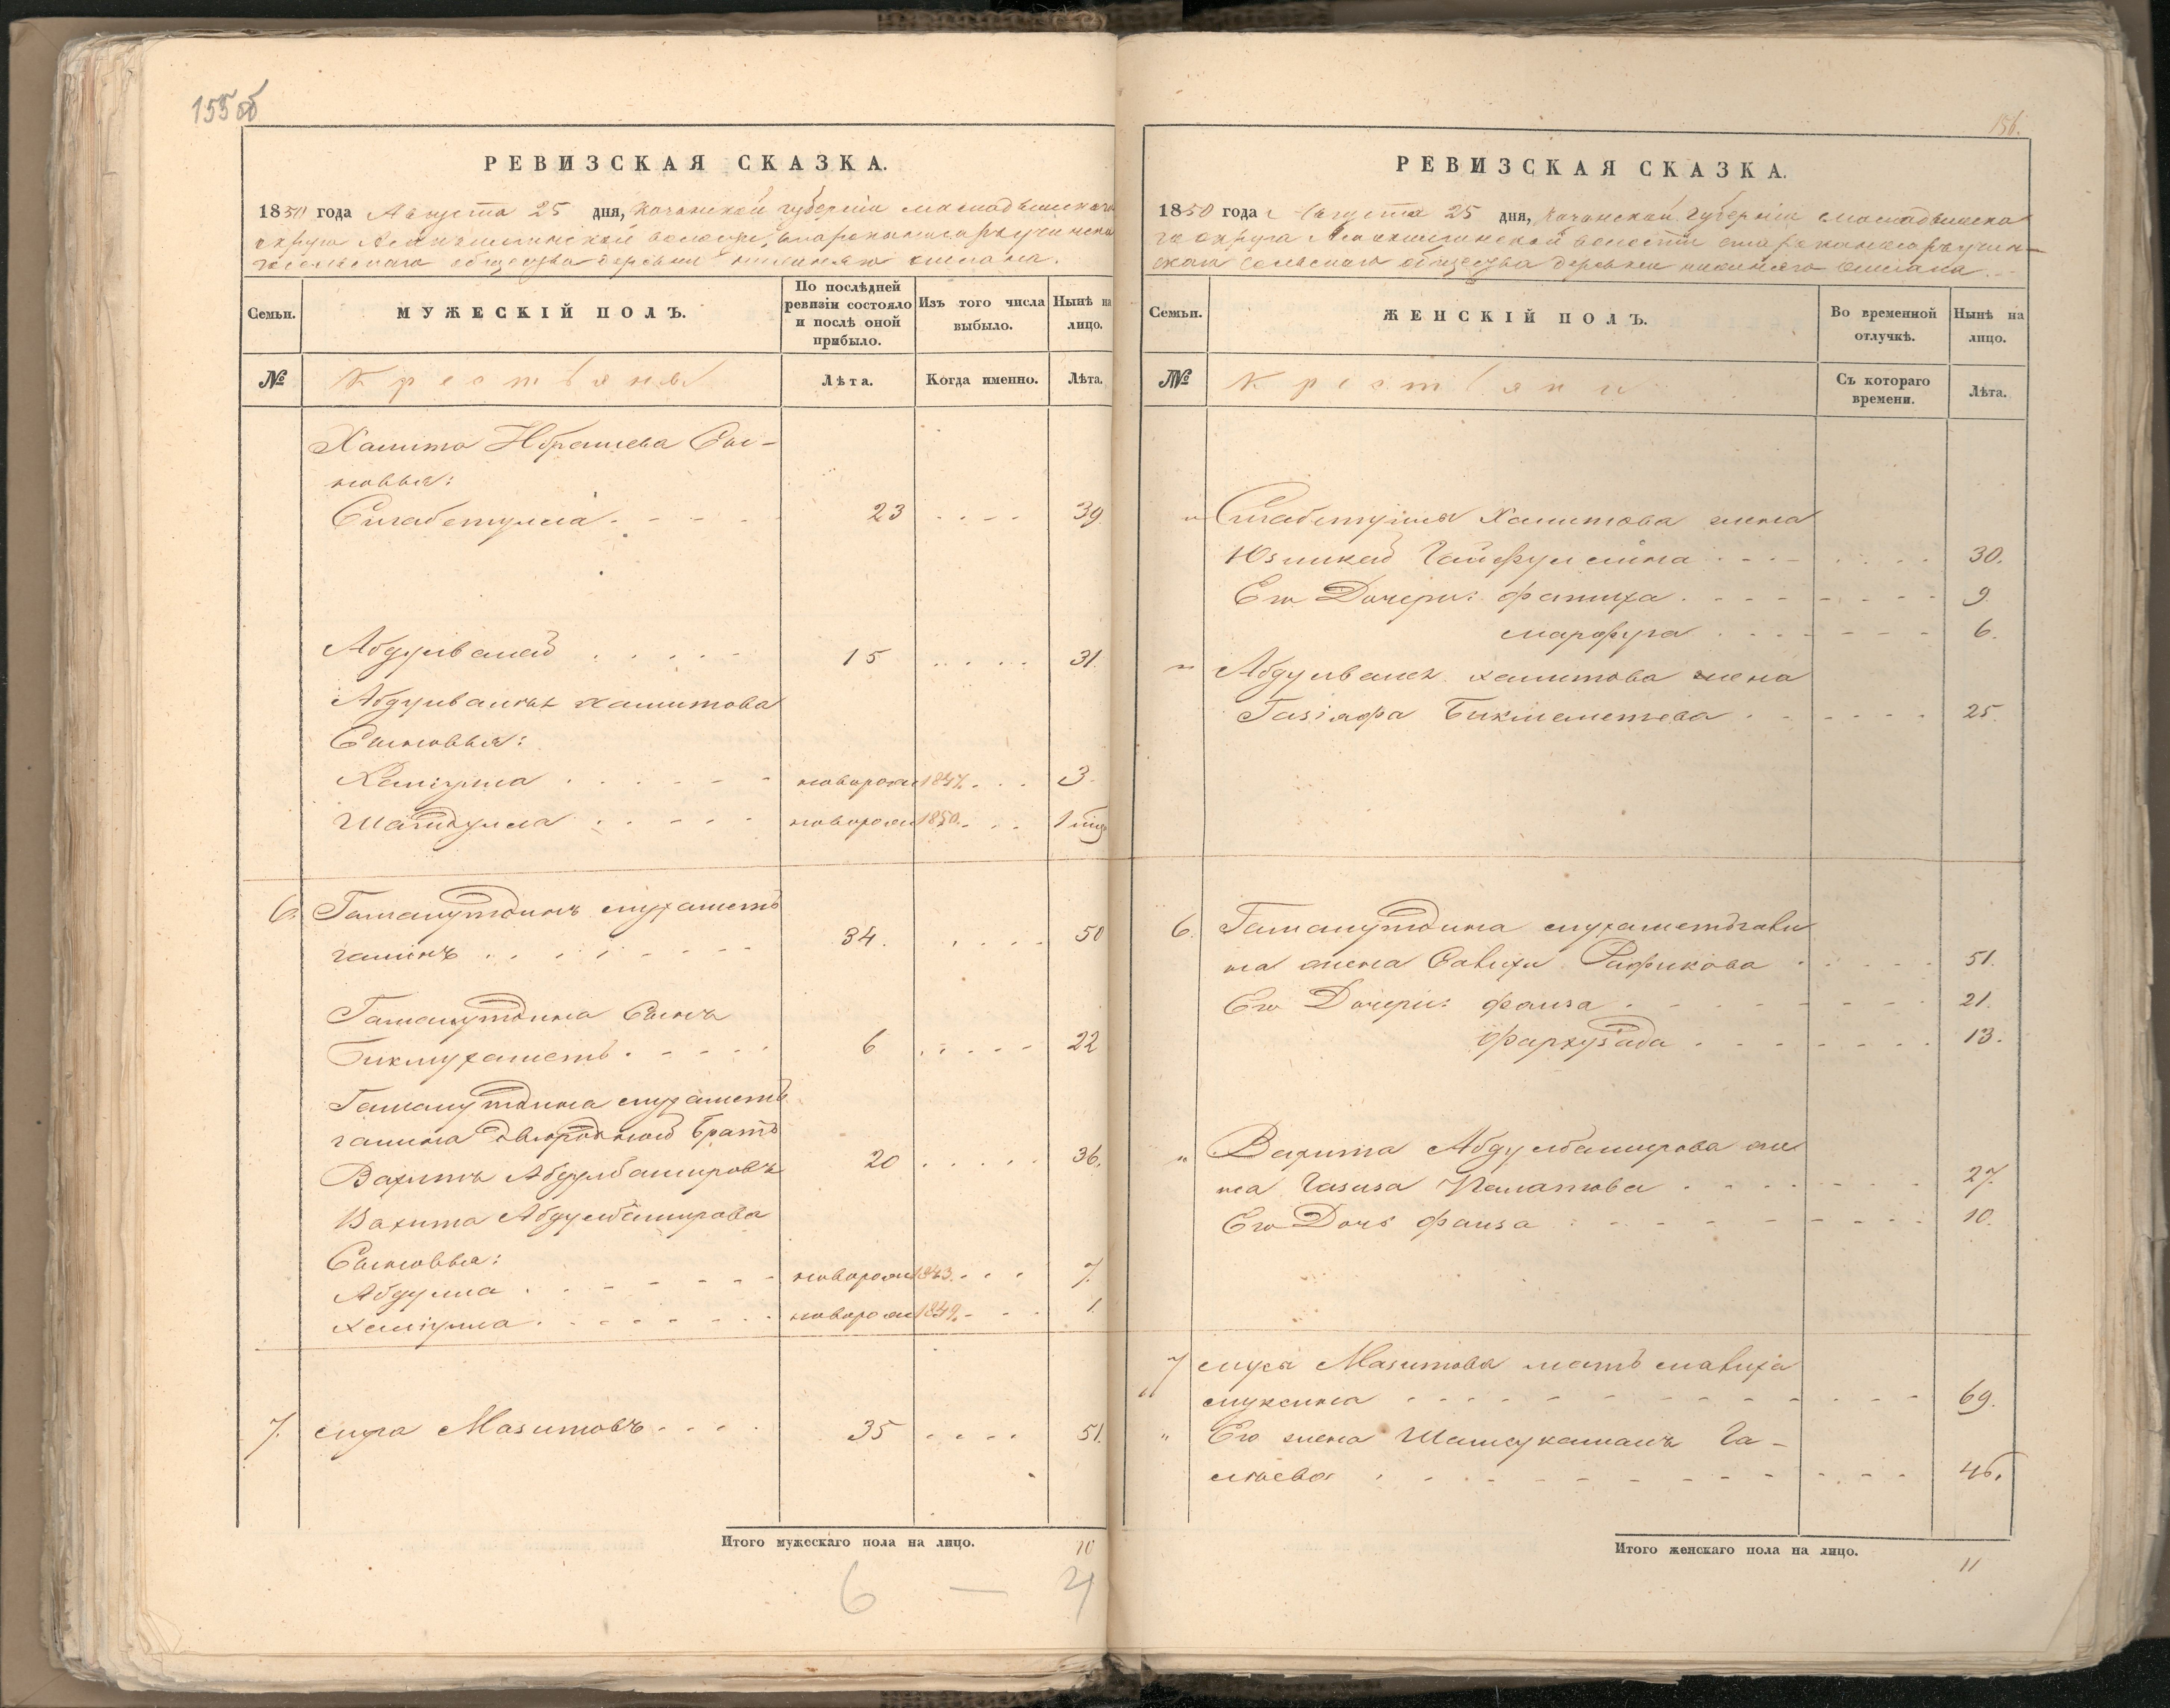 155об
РЕВИЗСКАЯ СКАЗКА.
1850 года Августа 25 дня, Казанской губернiи Мамадышскаго
округа волости,
сельскаго общества деревни
Семьи.
МУЖЕСКІЙ ПОЛЪ.
По послѣдней ревизіи состояло и послѣ оной прибыло.
Изъ того числа выбыло.
Нынѣ на лицо.
№
Крестьяне
Лѣта.
Когда именно.
Лѣта.
Хамита Ибраева Сы-
новья:
Сигабетулла 23 39
Абдулвалей 15 31.
Абдулвалея Хамитова
Сыновья:
новорож 1847. 3
новорож 1850. 1 мѣс
6. Гамалутдинъ Мухамет
галинъ 34. 50
Гамалутдина Сынъ
Бикмухаметъ 6 22
Гамалутдина Мухамет
галина двоюродной братъ
Вахитъ Абдулбашировъ 20 36.
Вахита Абдулбаширова
Сыновья:
Абдулла новорож 1843. 7.
Халiулла новорож 1849. 1
7. Муса Мазитовъ 35 51.
Итого мужескаго пола на лицо. 10
6 — 4
156.
РЕВИЗСКАЯ СКАЗКА.
1850 года Августа 25 дня, Казанской Губернiи Мамадышска
го округа волости
сельскаго общества деревни
Семьи.
ЖЕНСКІЙ ПОЛЪ.
Во временной отлучкѣ.
Нынѣ на лицо.
№
Крестьянки
Съ котораго времени.
Лѣта.
„ Сигабетуллы Хамитова жена
Юзликай Гайфуллина 30.
Его Дочери: Фатиха 9.
Марфуга 6.
„ Абдулвалея Хамитова жена
Газiяфа Бикмеметева 25.
6. Гамалутдина Мухаметгали
на жена Рафикова 51.
Его Дочери: Фаиза 21.
Фархузада 13.
„ Вахита Абдулбаширова же
на Газиза 27.
Его Дочь Фаиза 10.
7 Муса Мазитова мать
Муксина 69.
„ Его жена Шамсукамалъ Га-
леева 46.
Итого женскаго пола на лицо. 11